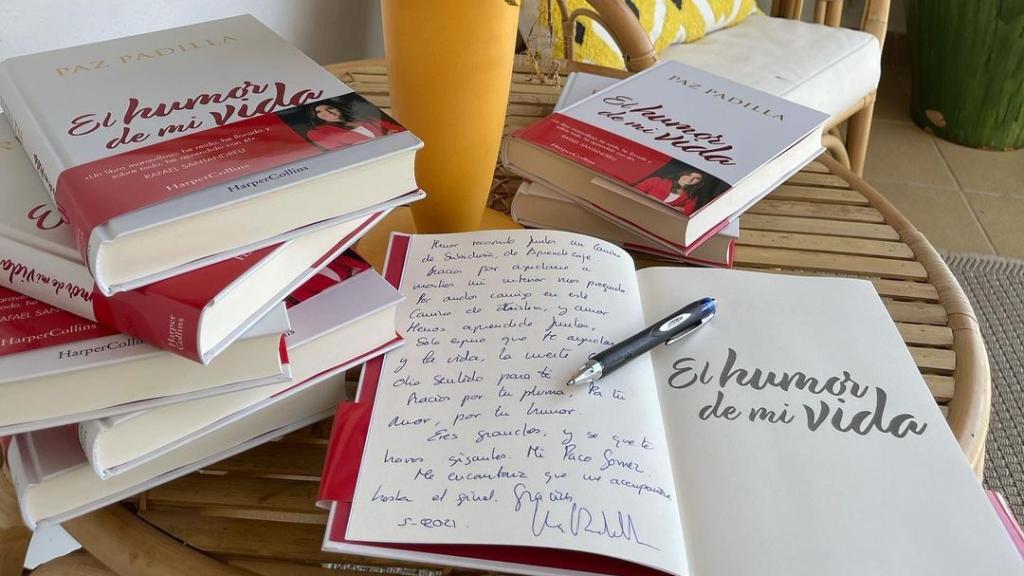 PAZ PADILLA
El humor
de mi vida
«Un libro maravilloso, he reído, he llorado y
sobre todo, he aprendido con él»
RAFAEL SANTANDREU
HarperCollins
HarperCollins
de mi vida
Harper
Collins
RAFAEL SAN
HarperCollins
HarperCollins
PAZ PADILLA
El humor
de mi vida
RAFAEL SANTANDREU
HarperCollins
Amor recorrido juntos un camino
de Sabiduría, de Aprendizaje
Gracias por ayudarme a
mostrar mi interior más profundo
Por andar camino en este
Camino de y amor
Hemos aprendido juntos,
Solo espero que te ayudara
y la vida, la muerte
Otro sentido para ti
Gracias por tu pluma, Por tu
amor, por tu humor.
Eres grande, y se que te
haras gigante. Mi Paco Gómez.
Me encantaria que me acompañaras
hasta el final. Gracias
5-2021
El humor
de mi vida